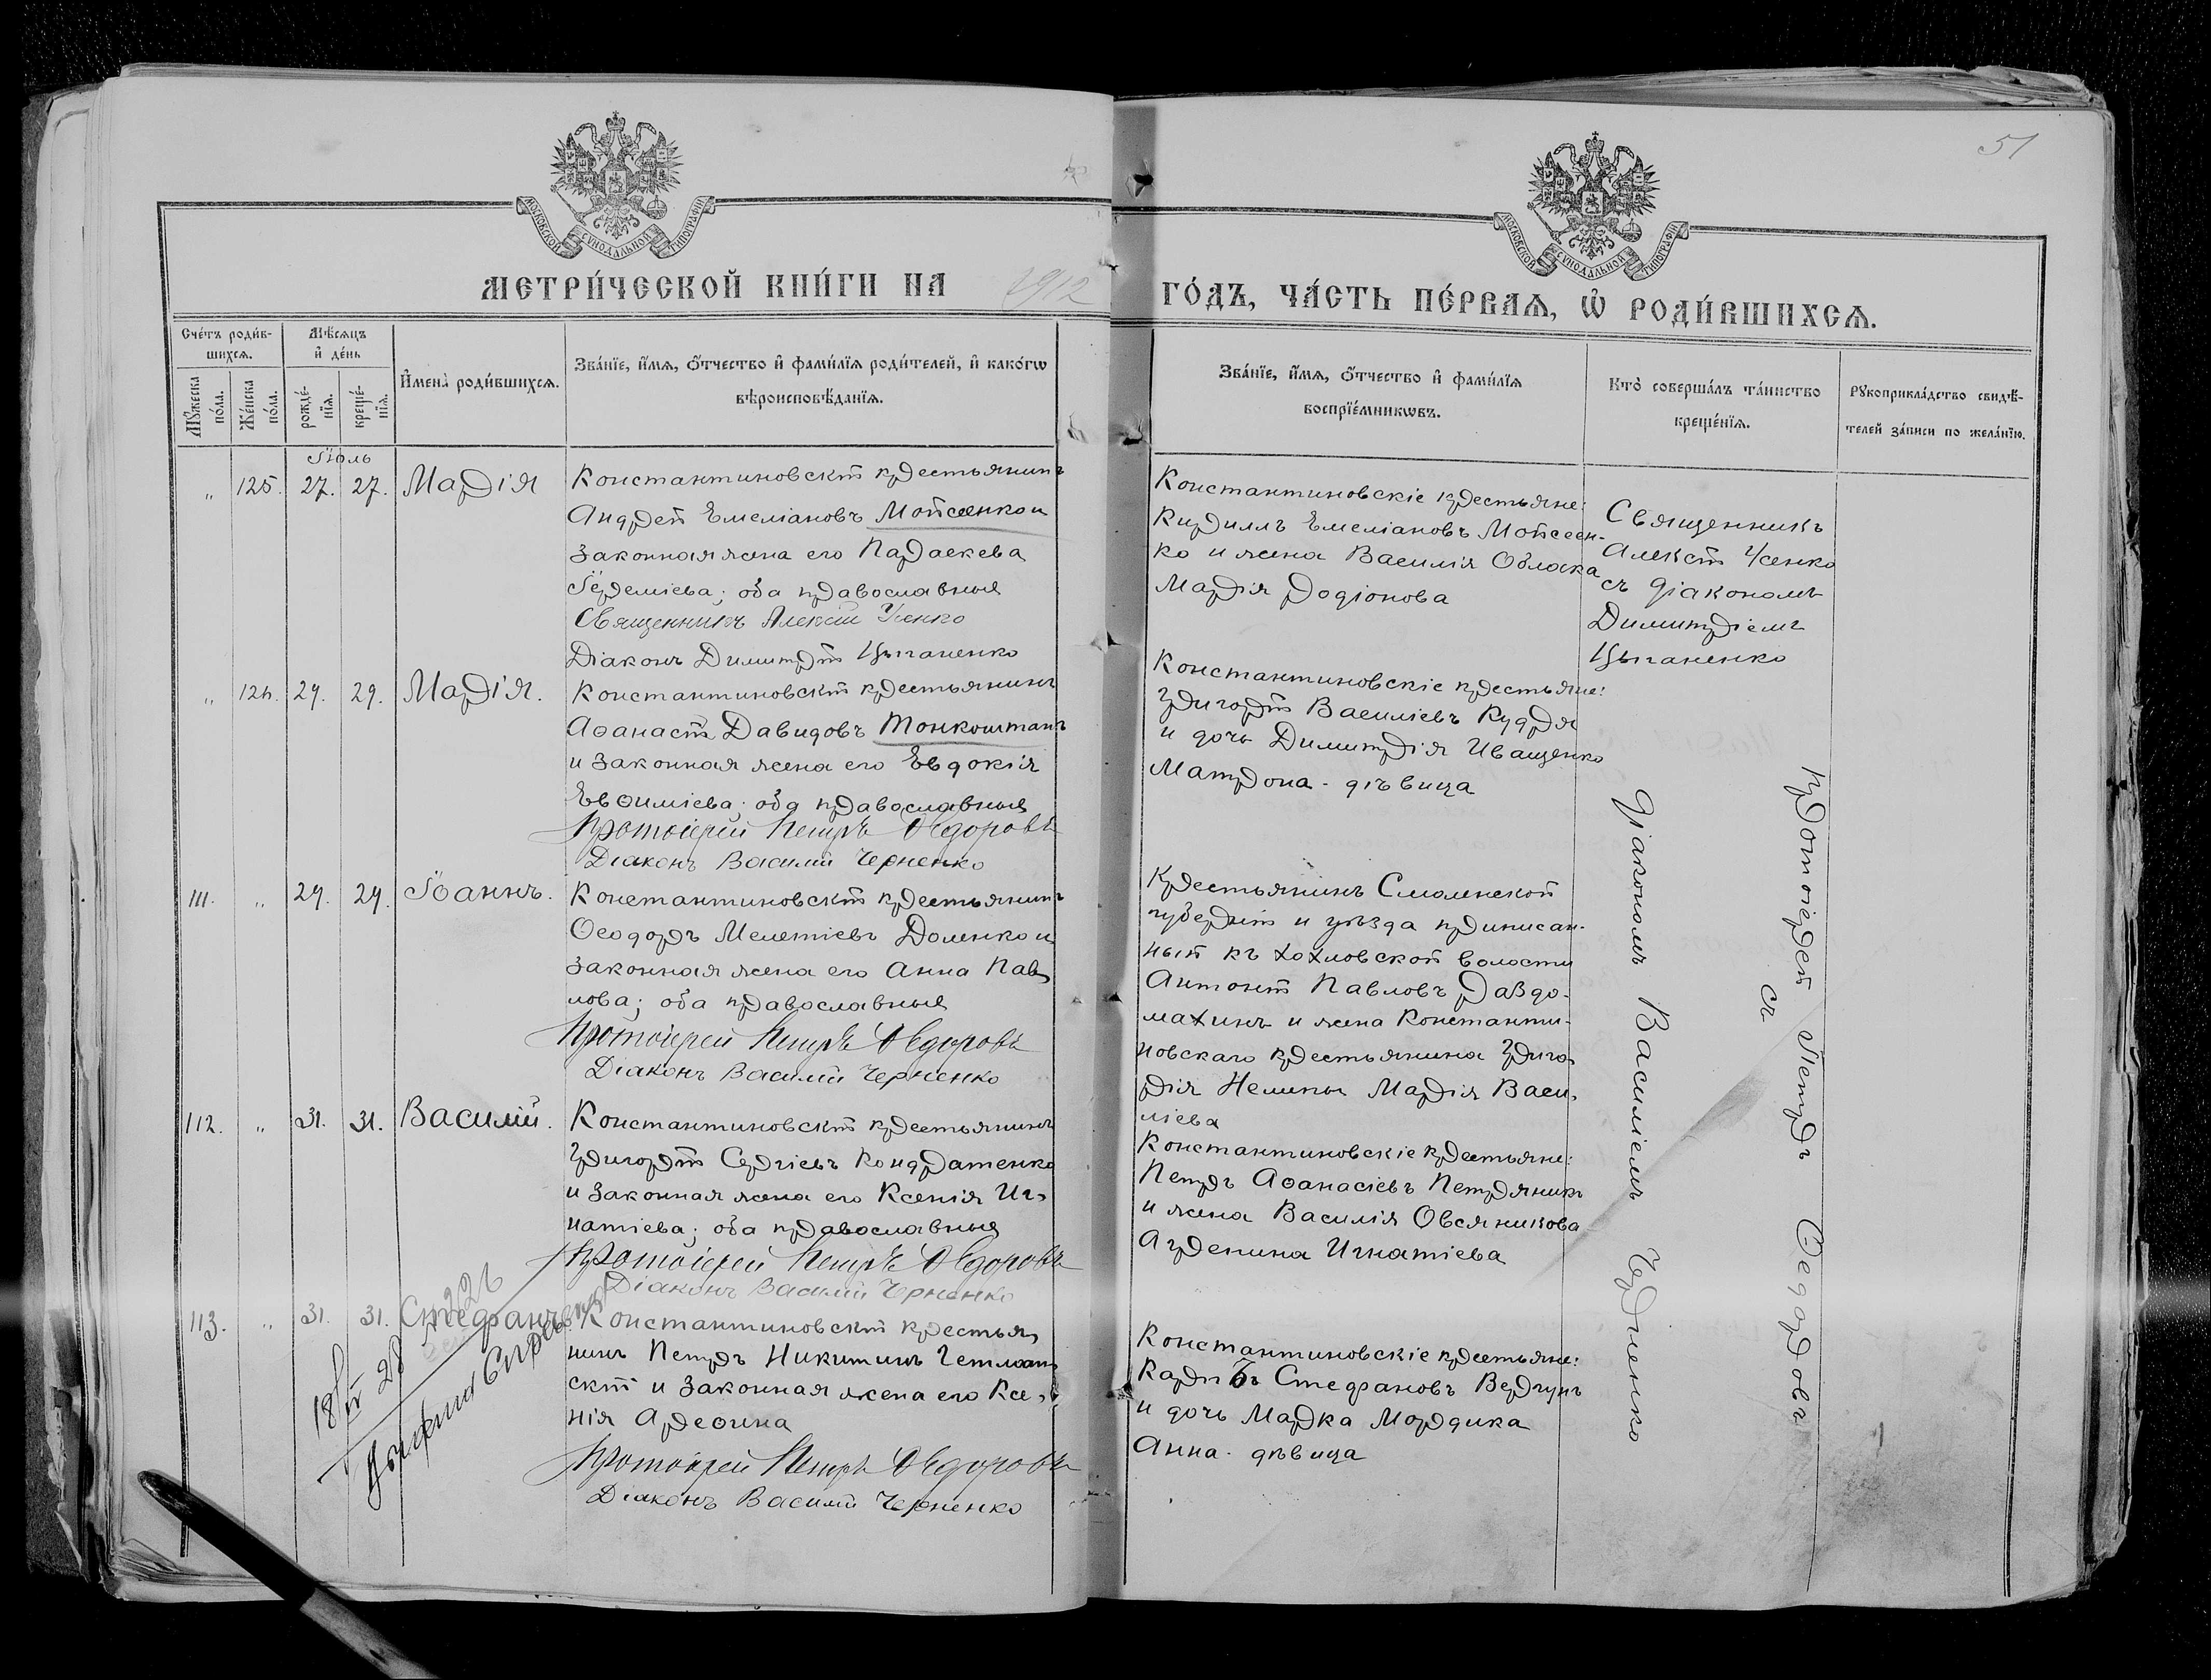 51
МОСКОВСКОЙ СѴНОДАЛЬНОЙ ТИПОГРАФІИ
МОСКОВСКОЙ СѴНОДАЛЬНОЙ ТИПОГРАФІИ
МЕТРИ́ЧЕСКОЙ КНИ́ГИ НА 1912 ГО́ДЪ, ЧА́СТЬ ПЕ́РВАѦ, Ѡ҆ РОДИ́ВШИХСѦ.
Сче́тъ роди́в-
шихсѧ.
Мꙋ́жеска по́ла.
Же́нска по́ла.
Мѣ́сѧцъ
и҆ де́нь
рожде́-
нїѧ.
креще́-
нїѧ.
И҆мена̀ роди́вшихсѧ.
Зва́нїе, и҆́мѧ, ѻ҆́тчество и҆ фами́лїѧ роди́телей, и҆ како́гѡ
вѣроисповѣ́данїѧ.
Зва́нїе, и҆́мѧ, ѻ҆́тчество и҆ фами́лїѧ
воспрїе́мникѡвъ.
Кто̀ соверша́лъ та́инство
креще́нїѧ.
Рꙋкоприкла́дство свидѣ́-
телей за́писи по жела́нїю.
Іюль
„ 125. 27. 27. Марія
Константиновскій крестьянинъ
Андрей Емеліановъ Мойсеенко и
законная жена его Параскева
Іереміева; оба православные
Священникъ Алексій Усенко
Діаконъ Димитрій Цыганенко
Константиновскіе крестьяне:
Кириллъ Емеліановъ Мойсеен-
ко и жена Василія Облака
Марія Родіонова
Священникъ
Алексій Усенко
съ діакономъ
Димитріемъ
Цыганенко
„ 126. 29. 29. Марія.
Константиновскій крестьянинъ
Аѳанасій Давидовъ Тонкоштанъ
и законная жена его Евдокія
Евѳиміева; оба православные
Протоіерей Петръ Ѳедоровъ
Діаконъ Василій Черненко
Константиновскіе крестьяне:
Григорій Василіевъ Кудря
и дочь Димитрія Иващенко
Матрона - дѣвица
111. „ 29. 29. Іоаннъ.
Константиновскій крестьянинъ
Ѳеодоръ Мелетіевъ Доленко и
законная жена его Анна Пав-
лова; оба православные
Протоіерей Петръ Ѳедоровъ
Діаконъ Василій Черненко
Крестьянинъ Смоленской
губерніи и уѣзда приписан-
ный къ Хохловской волости
Антоній Павловъ Раздо-
махинъ и жена Константи-
новскаго крестьянина Григо-
рія Нелипы Марія Васи-
ліева
112. „ 31. 31. Василій.
Константиновскій крестьянинъ
Григорій Сергіевъ Кондратенко
и законная жена его Ксенія Иг-
натіева; оба православные
Протоіерей Петръ Ѳедоровъ
Діаконъ Василій Черненко
Константиновскіе крестьяне:
Петръ Аѳанасіевъ Петряникъ
и жена Василія Овсяникова
Агрепина Игнатіева
113. „ 31. 31. Стефанъ.
Константиновскій крестья-
нинъ Петръ Никитинъ Гетман-
скій и законная жена его Ксе-
нія Ареѳина
Протоіерей Петръ Ѳедоровъ
Діаконъ Василій Черненко
Константиновскіе крестьяне:
Карпъ Стефановъ Вергунъ
и дочь Марка Мордика
Анна - дѣвица
Протоіерей Петръ Ѳеодоровъ
съ
діакономъ Василіемъ Черненко
18/IV 28